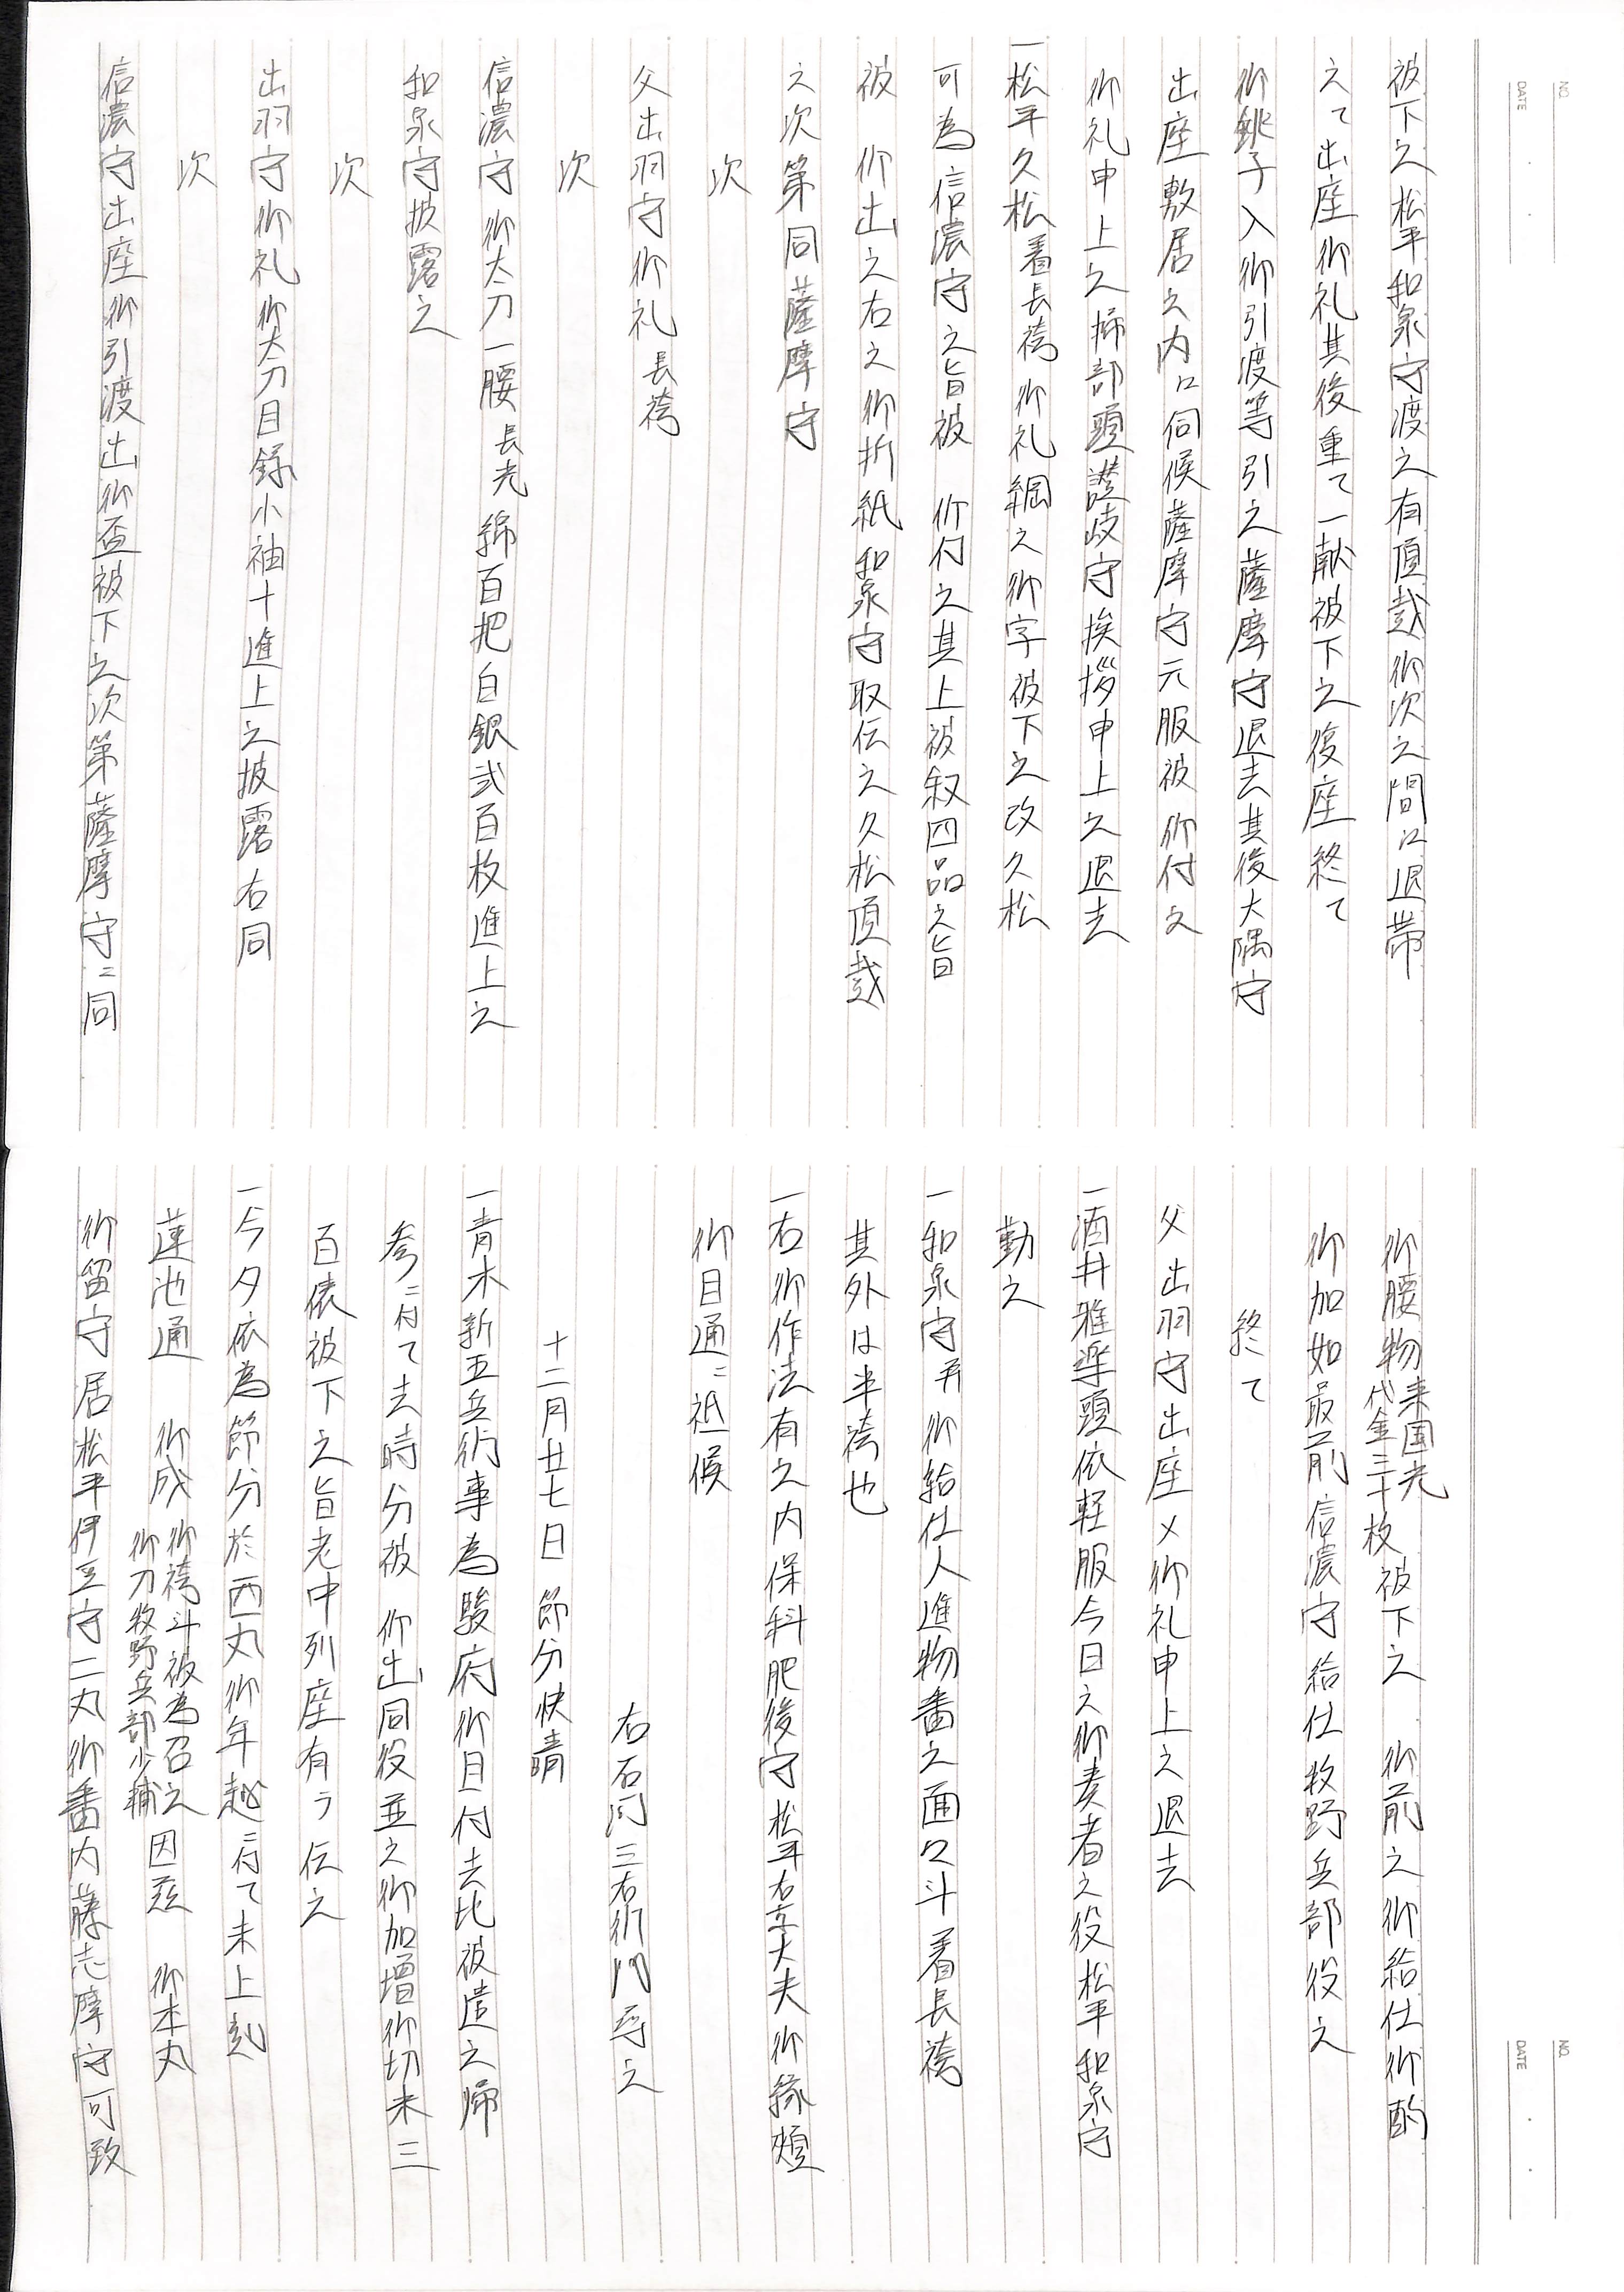 NO.
DATE
被下之松平和泉守渡之有頂戴御次之間江退帯
之て出座御礼其後重て一献被下之復座終て
御銚子入御引渡等引之薩摩守退去其後大隅守
出座敷居之内江伺候薩摩守元服被仰付之
御礼申上之掃部頭讃岐守挨拶申上之退去
一松平久松着長袴御礼綱之御字被下之改久松
可為信濃守之旨被 仰付之其上被叙四品之旨
被 仰出之右之御折紙和泉守取伝之久松頂戴
之次第同薩摩守
次
父出羽守御礼長袴
次
信濃守御太刀一腰長光綿百把白銀弐百枚進上之
和泉守披露之
次
出羽守御礼御太刀目録小袖十進上之披露右同
次
信濃守出座御引渡出御盃被下之次第薩摩守ニ同
NO.
DATE
御腰物来国光代金三十枚被下之 御前之御給仕御酌
御加如最前信濃守給仕牧野兵部役之
終て
父出羽守出座〆御礼申上之退去
一酒井雅楽頭依軽服今日之御奏者之役松平和泉守
勤之
一和泉守并御給仕人進物番之面々斗着長袴
其外は半袴也
一右御作法有之内保科肥後守松平右京大夫御縁頬
御目通ニ祗候
右石河三右衛門尋之
十二月廿七日 節分快晴
一青木新五兵衛事為駿府御目付去比被遣之帰
参ニ付て去時分被 仰出同役並之御加増御切米三
百俵被下之旨老中列座有テ伝之
一今夕依為節分於西丸御年越ニ付て未上刻
蓮池通 御成御袴斗被為召之御刀牧野兵部少輔因茲 御本丸
御留守居松平伊豆守二丸御番内藤志摩守可致